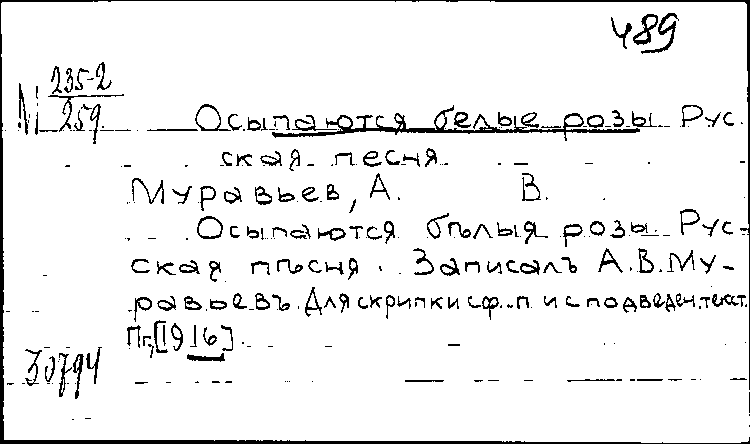 489
М 235-2
259
Осыпаются белые розы Рус
ская песня
Муравьев, А. В.
Осыпаются бѣлыя розы Рус-
ская пѣсня. Записалъ А.В.Му-
равьевъ. Для скрипки с ф.-п. и с подведен. текст.
Пг, [1916].
30794